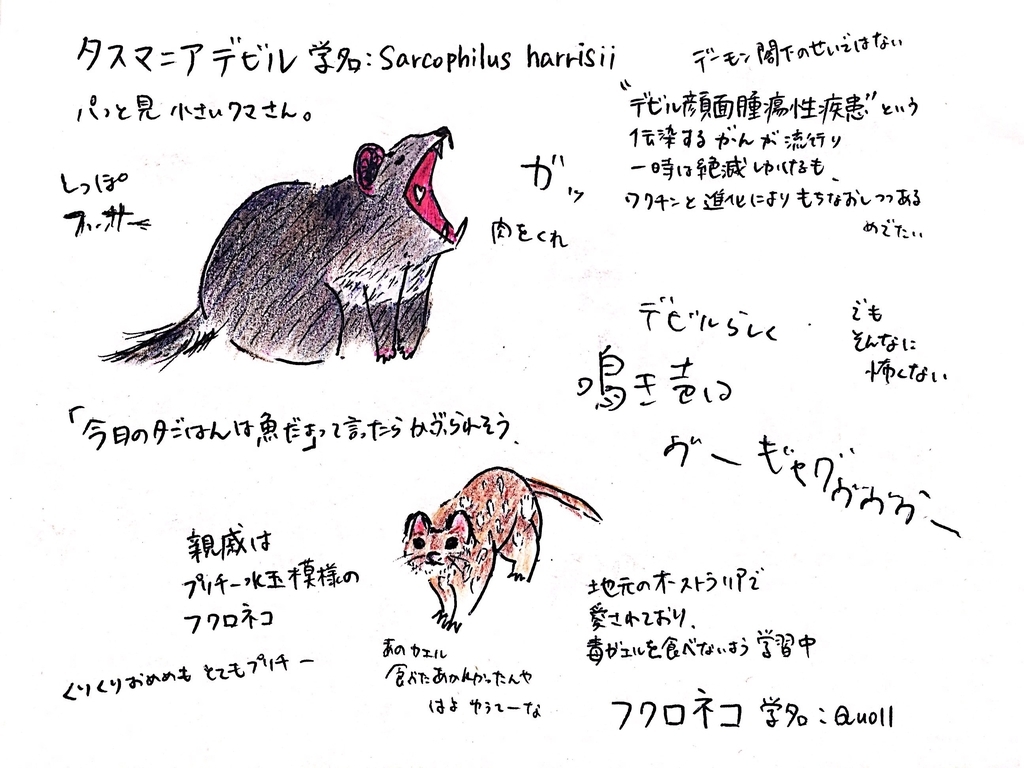 タスマニアデビル 学名：Sarcophilus harrisii
パッと見 小さいクマさん。
しっぽ
フッサー
ガッ
肉をくれ
デーモン閣下のせいではない
"デビル顔面腫瘍性疾患"という
伝染するがんが流行り
一時は絶滅しかけるも、
ワクチンと進化によりもちなおしつつある
めでたい
デビルらしく
鳴き声は
でも
そんなに
怖くない
「今日の夕ごはんは魚だよ」って言ったらかぶられそう、
親戚は
プリチー水玉模様の
フクロネコ
くりくりおめめも とてもプリチー
あのカエル
食べたあかんかったんや
はよ ゆうてーな
地元のオーストラリアで
愛されており、
毒ガエルを食べないよう 学習中
フクロネコ 学名：Quoll